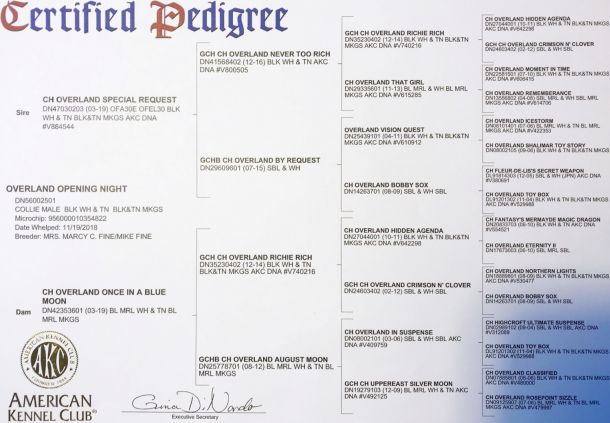 Certified Pedigree
Sire
CH OVERLAND SPECIAL REQUEST
DN47030203 (03-19) OFA30E OFEL30 BLK
WH & TN BLK&TN MKGS AKC DNA
#V884544
OVERLAND OPENING NIGHT
DN56002501
COLLIE MALE BLK WH & TN BLK&TN MKGS
Microchip: 956000010354822
Date Whelped: 11/19/2018
Breeder: MRS. MARCY C. FINE/MIKE FINE
Dam
CH OVERLAND ONCE IN A BLUE
MOON
DN42353601 (03-19) BL MRL WH & TN BL
MRL MKGS
GCH CH OVERLAND NEVER TOO RICH
DN41568402 (12-16) BLK WH & TN AKC
DNA #V800505
GCHB CH OVERLAND BY REQUEST
DN29609601 (07-15) SBL & WH
GCH CH OVERLAND RICHIE RICH
DN35230402 (12-14) BLK WH & TN
BLK&TN MKGS AKC DNA #V740216
GCHB CH OVERLAND AUGUST MOON
DN25778701 (08-12) BL MRL WH & TN BL
MRL MKGS
GCH CH OVERLAND RICHIE RICH
DN35230402 (12-14) BLK WH & TN BLK&TN
MKGS AKC DNA #V740216
CH OVERLAND THAT GIRL
DN29335601 (11-13) BL MRL & WH BL MRL
MKGS AKC DNA #V615285
OVERLAND VISION QUEST
DN25439101 (04-11) BLK WH & TN BLK&TN
MKGS AKC DNA #V610912
CH OVERLAND BOBBY SOX
DN14263701 (08-09) SBL & WH SBL
CH OVERLAND HIDDEN AGENDA
DN27044001 (10-11) BLK WH & TN BLK&TN
MKGS AKC DNA #V642298
GCH CH OVERLAND CRIMSON N' CLOVER
DN24603402 (02-12) SBL & WH SBL
CH OVERLAND IN SUSPENSE
DN08002101 (03-06) SBL & WH SBL AKC
DNA #V409759
GCH CH UPPEREAST SILVER MOON
DN19279103 (12-09) BL MRL WH & TN BL
MRL MKGS AKC DNA #V492125
CH OVERLAND HIDDEN AGENDA
DN27044001 (10-11) BLK WH & TN BLK&TN MKGS AKC
DNA #V642298
GCH CH OVERLAND CRIMSON N' CLOVER
DN24603402 (02-12) SBL & WH SBL
CH OVERLAND MOMENT IN TIME
DN22581501 (07-10) BLK WH & TN BLK&TN MKGS AKC
DNA #V606415
CH OVERLAND REMEMBERANCE
DN13556802 (04-08) SBL MRL & WH SBL MRL MKGS AKC
DNA #V614706
CH OVERLAND ICESTORM
DN06101401 (07-06) BL MRL WH & TN BL MRL MKGS AKC
DNA #V422353
CH OVERLAND SHALIMAR TOY STORY
DN08002105 (09-06) BLK WH & TN BLK&TN MKGS
CH FLEUR-DE-LIS'S SECRET WEAPON
DL91814303 (12-05) SBL & WH (JPN) AKC DNA
#V380691
CH OVERLAND TOY BOX
DL91201302 (11-04) BLK WH & TN BLK&TN MKGS AKC
DNA #V529988
CH FANTASY'S MERMAYDE MAGIC DRAGON
DN20433703 (08-10) BLK WH & TN BLK&TN MKGS AKC DNA
#V554521
CH OVERLAND ETERNITY II
DN17673603 (06-10) SBL MRL SBL
CH OVERLAND NORTHERN LIGHTS
DN18889801 (08-09) BLK WH & TN BLK&TN MKGS AKC
DNA #V530477
CH OVERLAND BOBBY SOX
DN14263701 (08-09) SBL & WH SBL
CH HIGHCROFT ULTIMATE SUSPENSE
DN02969102 (09-04) SBL & WH SBL AKC DNA
#V312089
CH OVERLAND TOY BOX
DL91201302 (11-04) BLK WH & TN BLK&TN MKGS AKC
DNA #V529988
CH OVERLAND CLASSIFIED
DN07885801 (06-06) BLK WH & TN BLK&TN MKGS AKC
DNA #V480000
CH OVERLAND ROSEPOINT SIZZLE
DN09125907 (06-08) BL MRL WH & TN BL MRL MKGS AKC
DNA #V479997
AMERICAN KENNEL CLUB
AKC
FOUNDED 1884
AMERICAN
KENNEL CLUB®
Gina DiNardo
Executive Secretary